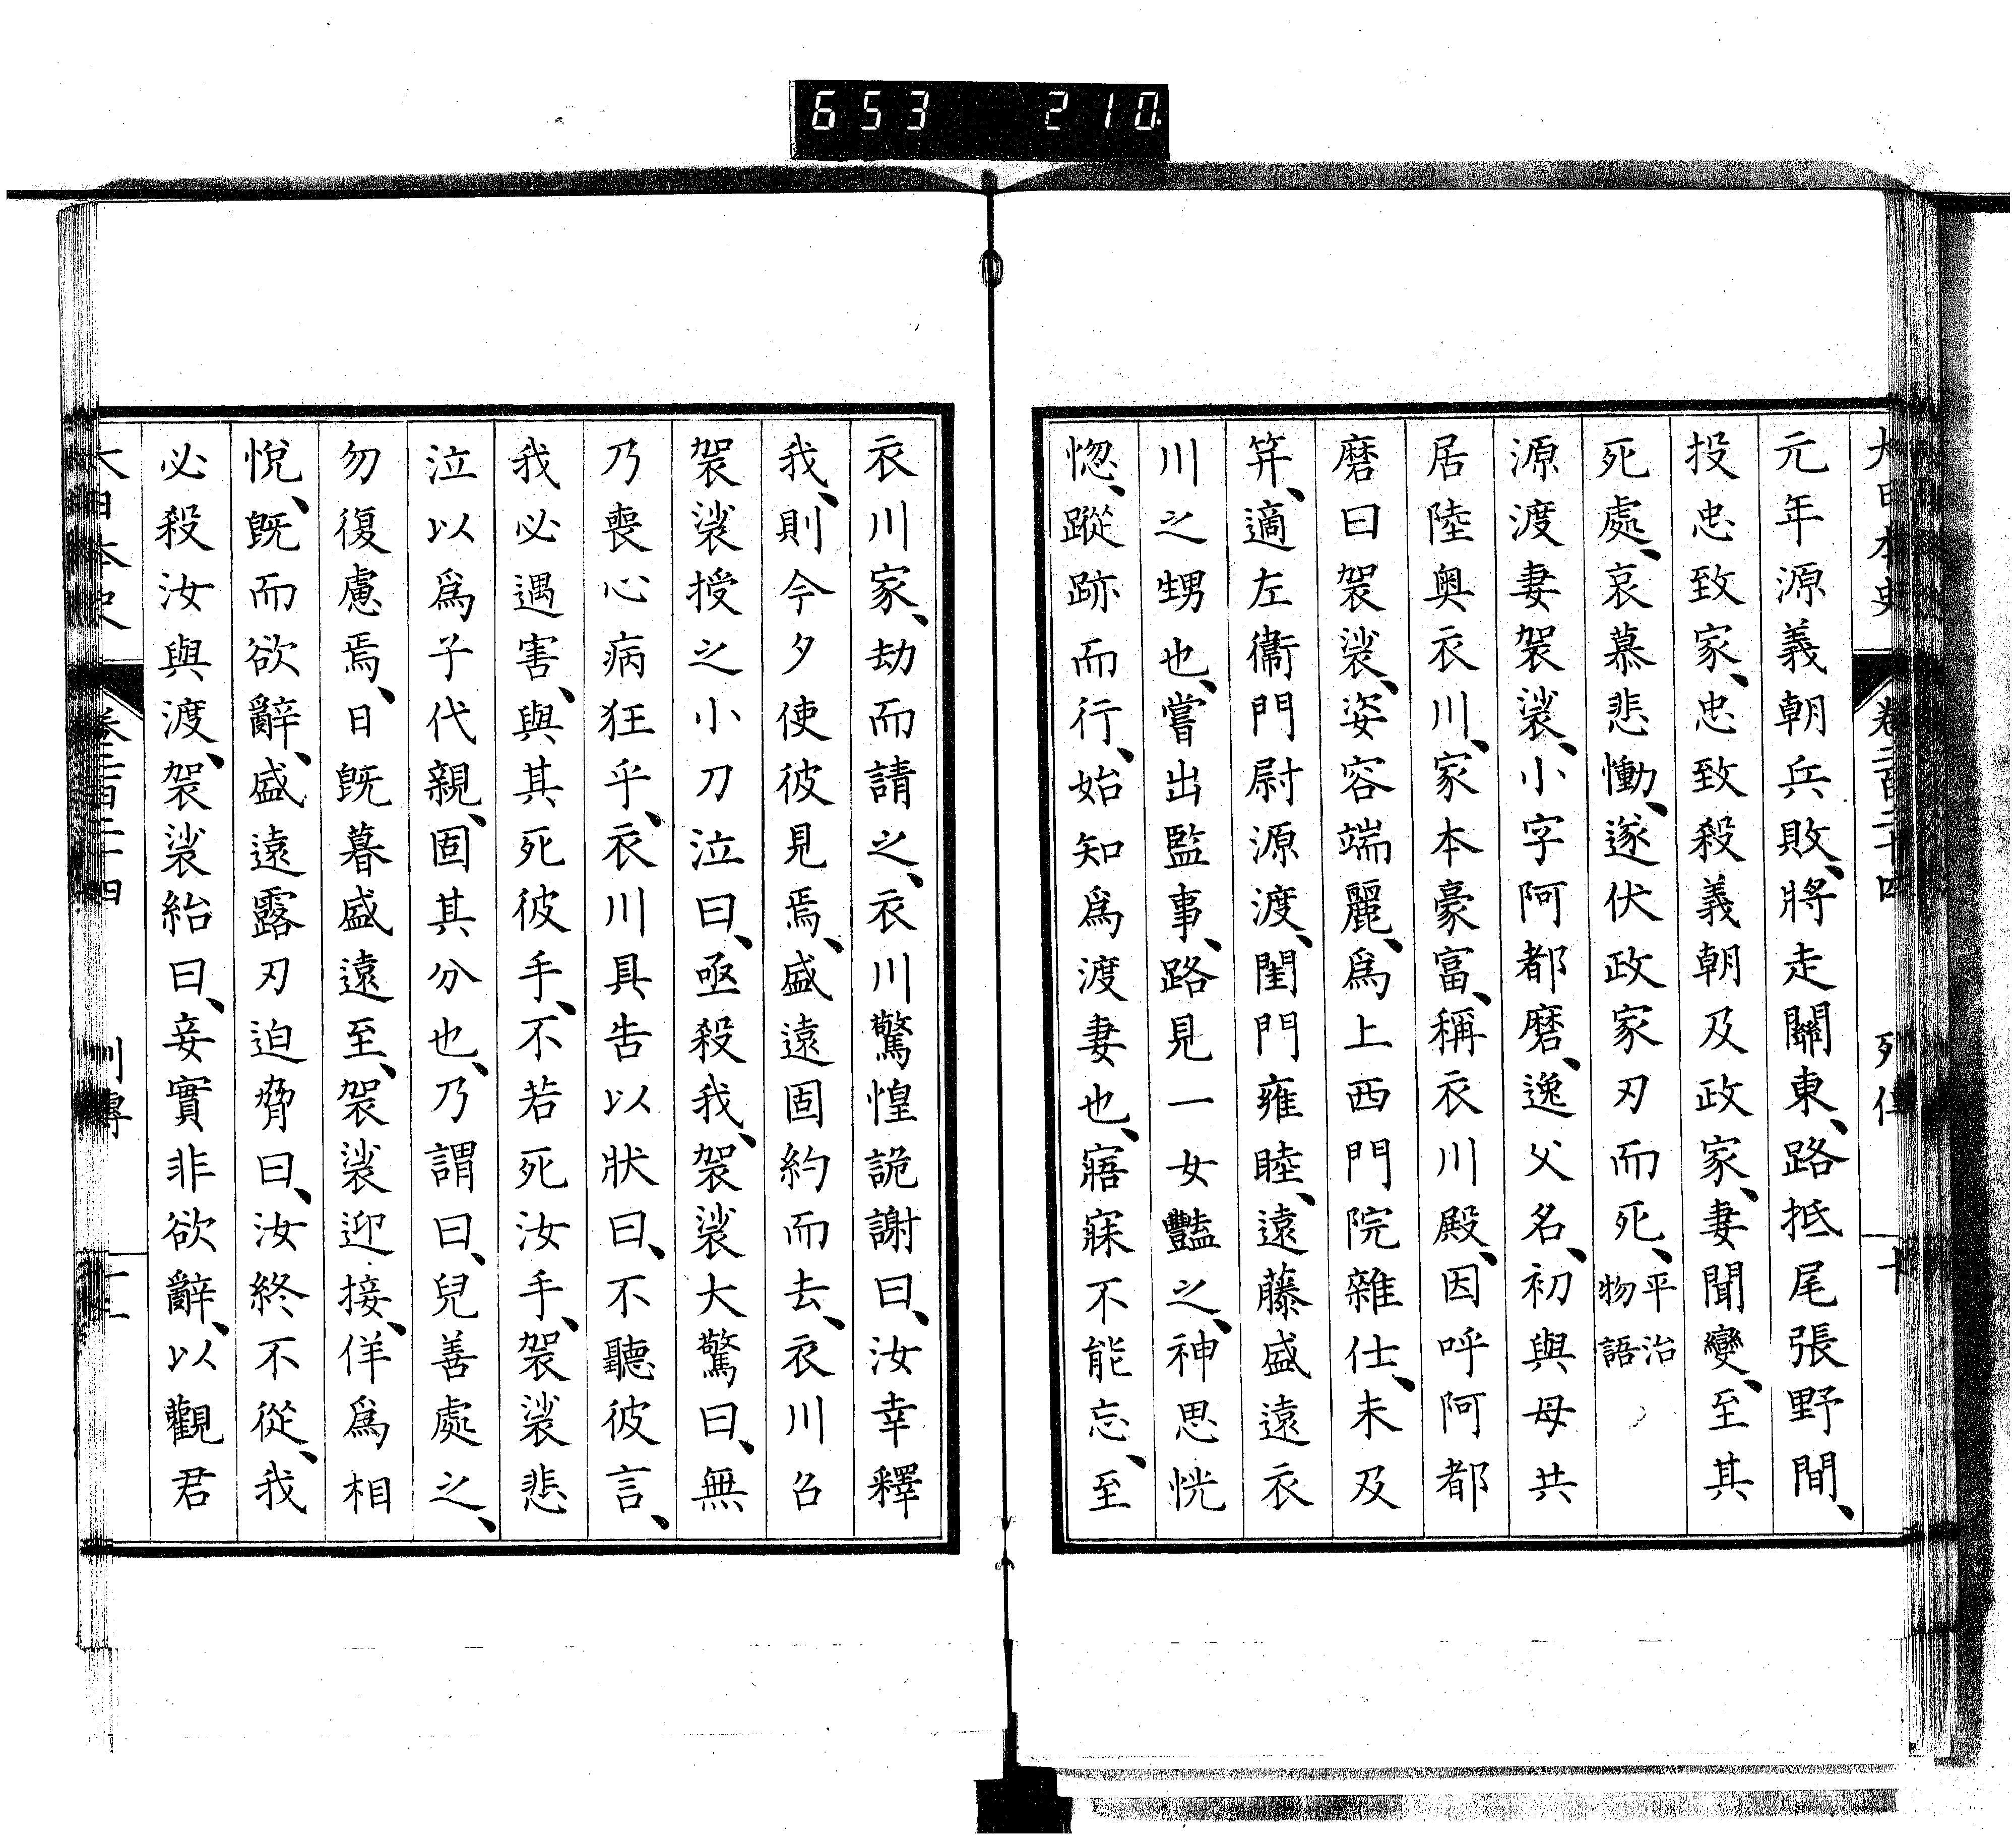 653 210
大日本史 卷二百二十四 列傳 十
元年源義朝兵敗、將走關東、路抵尾張野間、
投忠致家、忠致殺義朝及政家、妻聞變、至其
死處、哀慕悲慟、遂伏政家刃而死、平治物語
源渡妻袈裟、小字阿都磨、逸父名、初與母共
居陸奧衣川、家本豪富、稱衣川殿、因呼阿都
磨曰袈裟、姿容端麗、爲上西門院雜仕、未及
笄、適左衞門尉源渡、閨門雍睦、遠藤盛遠衣
川之甥也、嘗出監事、路見一女豔之、神思恍
惚、蹤跡而行、始知爲渡妻也、寤寐不能忘、至
衣川家、劫而請之、衣川驚惶詭謝曰、汝幸釋
我、則今夕使彼見焉、盛遠固約而去、衣川召
袈裟授之小刀泣曰、亟殺我、袈裟大驚曰、無
乃喪心病狂乎、衣川具吿以狀曰、不聽彼言、
我必遇害、與其死彼手、不若死汝手、袈裟悲
泣以爲子代親、固其分也、乃謂曰、兒善處之、
勿復慮焉、日既暮盛遠至、袈裟迎接、佯爲相
悅、既而欲辭、盛遠露刃迫脅曰、汝終不從、我
必殺汝與渡、袈裟紿曰、妾實非欲辭、以觀君
大日本史 卷二百二十四 列傳 十一